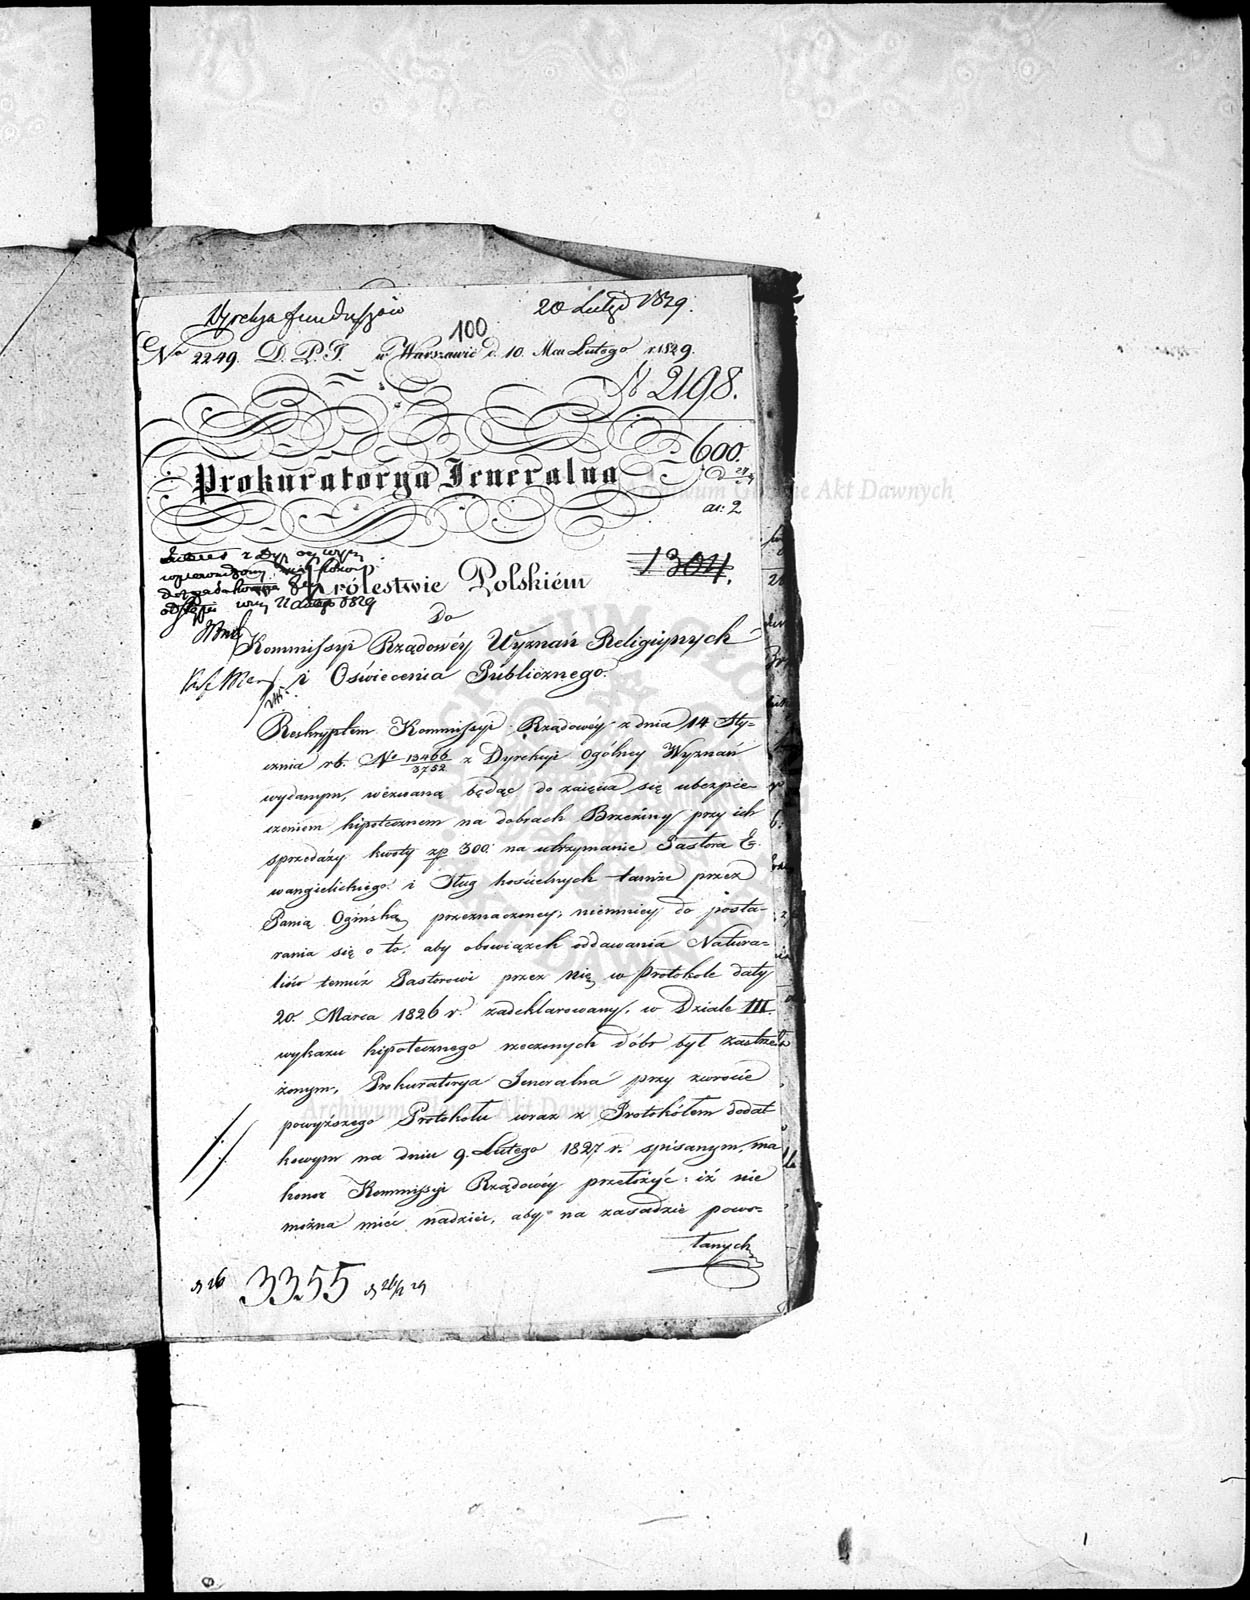 Dyrekcya funduszów 20 Lutego 1829.
100
No 2249. D. P. J. w Warszawie d. 10. Mca Lutego r. 1829.
N 2198.
600.
Prokuratorya Jeneralna
ar: 2
1304.
w Królestwie Polskiém
Do
Kommissyi Rządowéy Wyznań Religiynych
i Oświecenia Publicznego.
Reskryptem Kommissyi Rządowéy z dnia 14 Sty-
cznia rb. No 13466/3752 z Dyrekcyi Ogólney Wyznań
wydanym, wezwaną będąc do zaięcia się ubezpie-
czeniem hipotecznem na dobrach Brzeziny przy ich
sprzedaży kwoty zp 300. na utrzymanie Pastora E-
wangielickiego i Sług kościelnych tamże przez
Panią Ogińską przeznaczoney, niemniey do posta-
rania się o to, aby obowiązek oddawania Natura-
liów temuż Pastorowi przez nią w Protokole daty
20. Marca 1826 r. zadeklarowany, w Dziale III.
wykazu hipotecznego rzeczonych dóbr był zastrze-
żonym, Prokuratorya Jeneralna przy zwrocie
powyższego Protokołu wraz z Protokółem dodat
kowym na dniu 9. Lutego 1827 r. spisanym, ma
honor Kommissyi Rządowéy przełożyć: iż nie
można mieć nadziei, aby na zasadzie powo-
łanych
3355
Archiwum Główne Akt Dawnych
Archiwum Główne Akt Dawnych